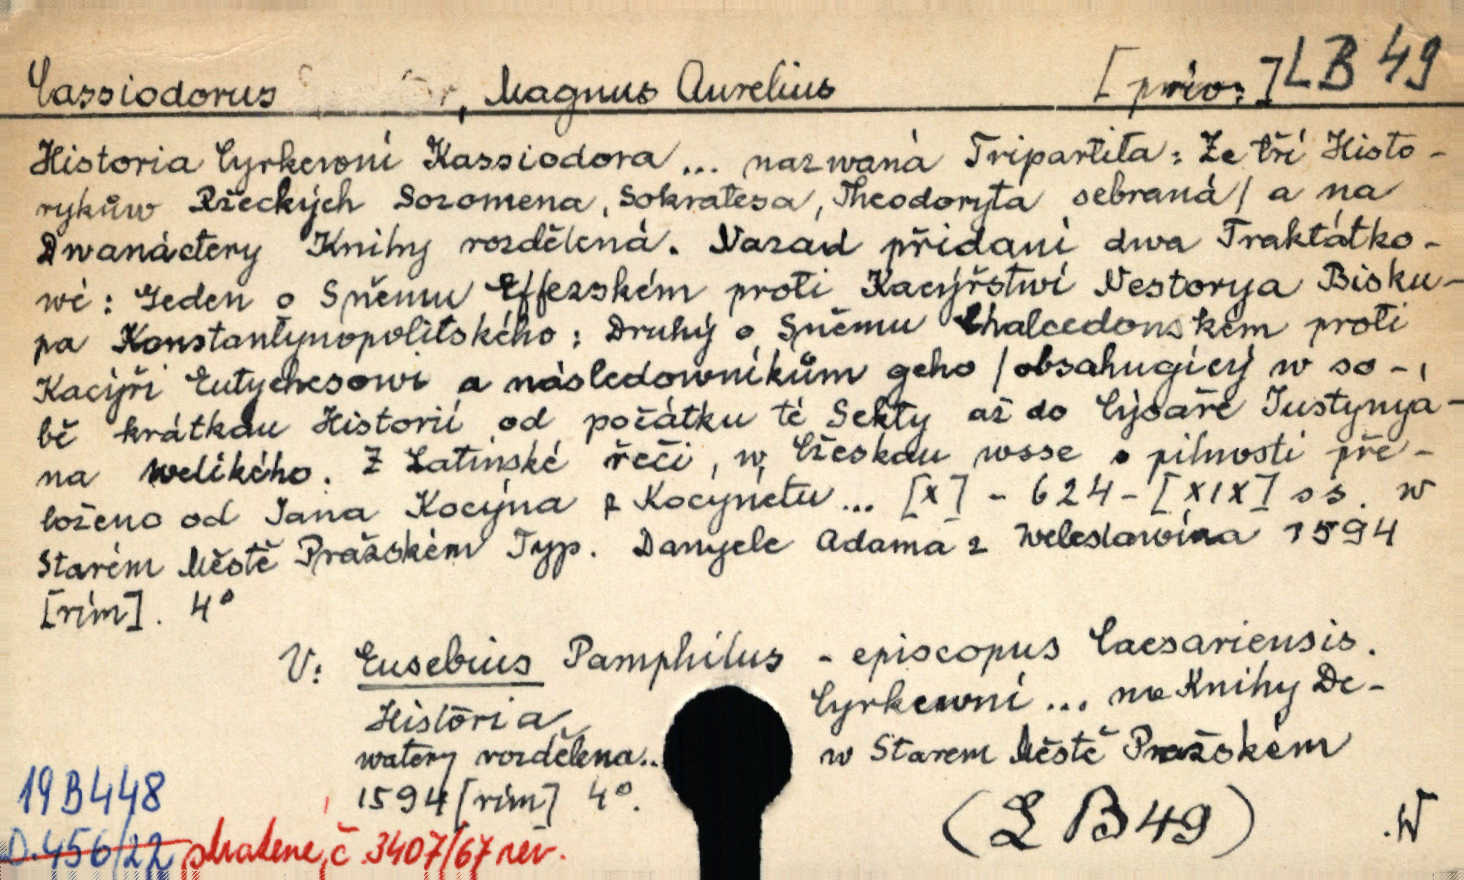 Cassiodorus , Magnus Aurelius [přív.] LB 49
Historia Cyrkewní Kassiodora ... nazwaná Tripartita: Ze tří Histo-
rykůw Ržeckých Sozomena, Sokratesa, Theodoryta sebraná / a na
Dwanáctery Knihy rozdělená. Nazad přidani dwa Traktátko-
wé: Geden o Sněmu Effezském proti Kacýřstwí Nestorya Bisku-
pa Konstantynopolitského: Druhý o Sněmu Chalcedonském proti
Kacýři Eutychesowi a následowníkům geho / obsahugícý w so-
bě krátkau Historii od počátku té Sekty až do Cýsaře Justynyá-
na welikého. Z Latinské řeči, w Czeskau wsse s pilností pře-
loženo od Jana Kocýna z Kocýnétu ... [X] - 624 - [XIX] ss. w
Starém Městě Pražském Typ. Danyele Adama z Weleslawína 1594
[rím]. 4°
V: Eusebius Pamphilus - episcopus Caesariensis.
Historia Cyrkewní ... na Knihy De-
watery rozdělena.. w Starem Městě Pražském
1594 [rím] 4°.
19 B 448
(L B 49) .W
D.456/22 ztratené, č. 3407/67 rev.